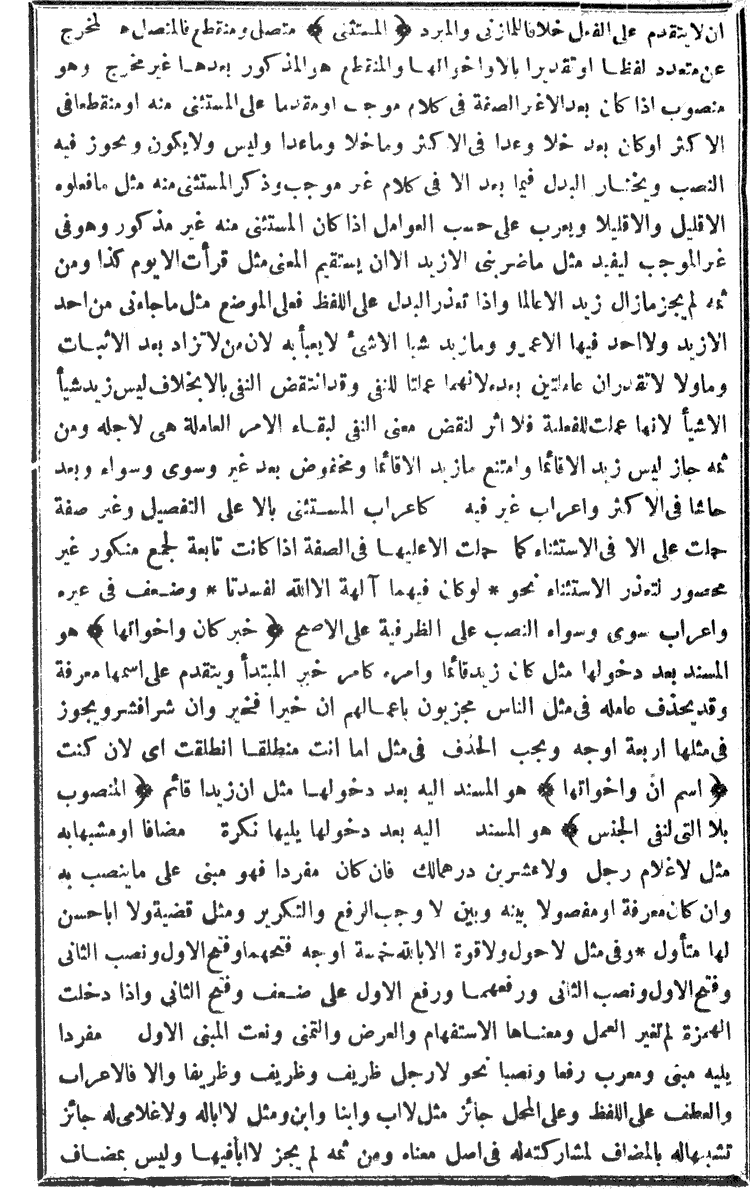 ان لا يتقدم على الفعل خلافا للمازنى والمبرد ﴿ المستثنى ﴾ متصل ومنقطع فالمتصل هو المخرج
عن متعدد لفظا او تقديرا بالا واخواتها والمنقطع هو المذكور بعدها غير مخرج وهو
منصوب اذا كان بعد الا غير الصفة فى كلام موجب او مقدما على المستثنى منه او منقطعا فى
الاكثر او كان بعد خلا وعدا فى الاكثر وما خلا وما عدا وليس ولا يكون ويجوز فيه
النصب ويختار البدل فيما بعد الا فى كلام غير موجب وذكر المستثنى منه مثل ما فعلوه
الا قليل والا قليلا ويعرب على حسب العوامل اذا كان المستثنى منه غير مذكور وهو فى
غير الموجب ليفيد مثل ما ضربنى الا زيد الا ان يستقيم المعنى مثل قرأت الا يوم كذا ومن
ثمه لم يجز ما زال زيد الا عالما واذا تعذر البدل على اللفظ فعلى الموضع مثل ما جاءنى من احد
الا زيد ولا احد فيها الا عمرو وما زيد شيا الا شئ لا يعبأ به لان من لا تزاد بعد الاثبات
وما ولا لا تقدران عاملتين بعده لانهما عملتا للنفى وقد انتقض النفى بالا بخلاف ليس زيد شيأ
الا شيأ لانها عملت للفعلية فلا اثر لنقض معنى النفى لبقاء الامر العاملة هى لاجله ومن
ثمه جاز ليس زيد الا قائما وامتنع ما زيد الا قائما ومخفوض بعد غير وسوى وسواء وبعد
حاشا فى الاكثر واعراب غير فيه كاعراب المستثنى بالا على التفصيل وغير صفة
حملت على الا فى الاستثناء كما حملت الا عليها فى الصفة اذا كانت تابعة لجمع منكور غير
محصور لتعذر الاستثناء نحو * لو كان فيهما آلهة الا الله لفسدتا * وضعف فى غيره
واعراب سوى وسواء النصب على الظرفية على الاصح ﴿ خبر كان واخواتها ﴾ هو
المسند بعد دخولها مثل كان زيد قائما وامره كامر خبر المبتدأ ويتقدم على اسمها معرفة
وقد يحذف عامله فى مثل الناس مجزيون باعمالهم ان خيرا فخير وان شرا فشر ويجوز
فى مثلها اربعة اوجه ويجب الحذف فى مثل اما انت منطلقا انطلقت اى لان كنت
﴿ اسم انّ واخواتها ﴾ هو المسند اليه بعد دخولها مثل ان زيدا قائم ﴿ المنصوب
بلا التى لنفى الجنس ﴾ هو المسند اليه بعد دخولها يليها نكرة مضافا او مشبها به
مثل لا غلام رجل ولا عشرين درهما لك فان كان مفردا فهو مبنى على ما ينصب به
وان كان معرفة او مفصولا بينه وبين لا وجب الرفع والتكرير ومثل قضية ولا ابا حسن
لها متأول * وفى مثل لا حول ولا قوة الا بالله خمسة اوجه فتحهما وفتح الاول ونصب الثانى
وفتح الاول ونصب الثانى ورفعهما ورفع الاول على ضعف وفتح الثانى واذا دخلت
الهمزة لم تغير العمل ومعناها الاستفهام والعرض والتمنى ونعت المبنى الاول مفردا
يليه مبنى ومعرب رفعا ونصبا نحو لا رجل ظريف وظريف وظريفا والا فالاعراب
والعطف على اللفظ وعلى المحل جائز مثل لا اب وابنا وابن ومثل لا ابا له ولا غلامى له جائز
تشبيها له بالمضاف لمشاركته له فى اصل معناه ومن ثمه لم يجز لا ابا فيها وليس بمضاف